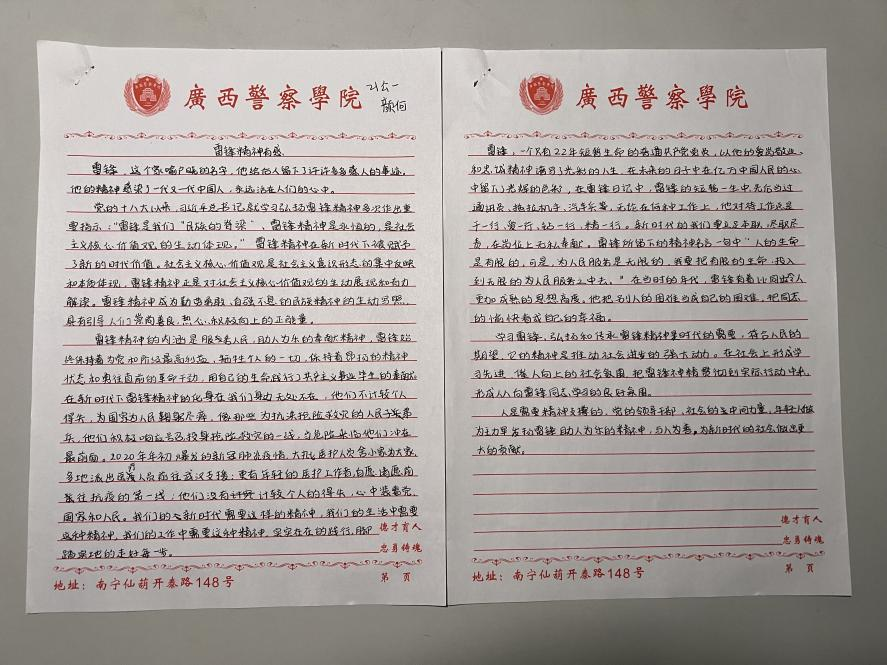 廣西警察學院
雷锋精神有感
雷锋,这个家喻户晓的名字,他给后人留下了许许多多感人的事迹,
他的精神感染了一代又一代中国人,永远活在人们的心中。
党的十八大以来,习近平总书记就学习弘扬雷锋精神多次作出重
要指示:“雷锋是我们“民族的脊梁”、雷锋精神是永恒的,是社会
主义核心价值观的生动体现。”雷锋精神在新时代下被赋予
了新的时代价值。社会主义核心价值观是社会主义意识形态的集中反映
和本质体现,雷锋精神正是对社会主义核心价值观的生动展现和有力
解读。雷锋精神成为勤劳勇敢、自强不息的民族精神的生动写照,
具有引导人们崇尚善良,热心、积极向上的正能量。
雷锋精神的内涵是服务人民,助人为乐的奉献精神,雷锋始
终保持着为党和阶级最高利益,牺牲个人的一切,保持着昂扬的精神
状态和勇往直前的革命干劲,用自己的生命践行了共产主义事业毕生的奉献。
在新时代下雷锋精神的化身在我们身边无处不在,他们不计较个人
得失,为国家为人民鞠躬尽瘁,像那些为抗洪抢险救灾的人民子弟
兵,他们积极响应号召投身抢险救灾的一线,当危险来临他们冲在
最前面。2020年年初爆发的新冠肺炎疫情,大批医护人员舍小家为大家,
多地派出医疗人员前往武汉支援;更有年轻的医护工作者自愿请愿前
往抗疫的第一线;他们没有计较个人的得失,心中装着党、
国家和人民。我们的新时代需要这样的精神,我们的生活中需要
这种精神,我们的工作中需要这种精神,实实在在的践行,脚
踏实地的走好每一步。
德才育人
忠勇铸魂
地址:南宁仙葫开泰路148号
第 页
廣西警察學院
雷锋,一个只有22年短暂生命的普通共产党员,以他的爱岗敬业
和忠诚精神谱写了光彩的人生,在未来的日子中在亿万中国人民的心
中留下了光辉的色彩,在雷锋日记中,雷锋的短暂一生中先后当过
通讯员、拖拉机手、汽车兵等,无论在何种工作上,他对待工作总是
干一行、爱一行、钻一行、精一行。新时代的我们要立足本职,尽职尽
责,在岗位上无私奉献。雷锋所留下的精神名言一句中“人的生命
是有限的,可是,为人民服务是无限的,我要把有限的生命,投入
到无限的为人民服务之中去。”在当时的年代,雷锋有着比同龄人
更加成熟的思想高度。他把别人的困难当成自己的困难,把同志
的愉快看成自己的幸福。
学习雷锋、弘扬和传承雷锋精神是时代的需要,符合人民的
期望,它的精神是推动社会进步的强大动力。在社会上形成学
习先进,催人向上的社会氛围,把雷锋精神贯彻到实际行动中来,
形成人人向雷锋同志学习的良好氛围。
人是需要精神支撑的,党的领导干部、社会的中间力量,年轻人
为主力军发扬雷锋助人为乐的精神,与人为善。为新时代的社会做出更
大的贡献。
德才育人
忠勇铸魂
地址:南宁仙葫开泰路148号
第 页